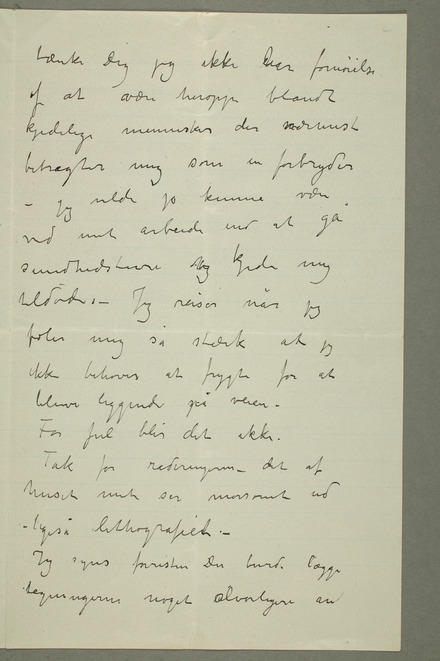 tænke Dig jeg ikke har fornöielse
af at være heroppe blandt
kjedelige mennesker der nærmest
betragter mig som en forbryder
– jeg vilde jo kunne være
ved mit arbeide end at gå
sundhedsture og kjede mig
tildöde. – Jeg reiser når jeg
föler mig så stærk at jeg
ikke behöver at frygte for at
blive liggende på veien –
Før jul blir det ikke.
Tak for raderingerne – det af
huset mit ser morsomt ud
– ligeså lithografiet –
Jeg synes forresten Du burde lægge
tegningerne noget alvorligere an